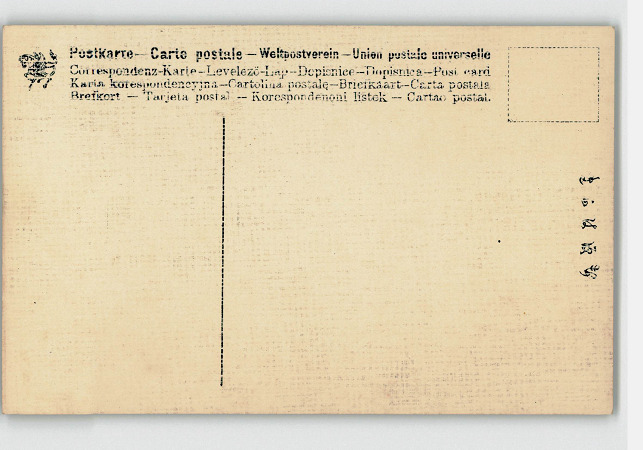 Postkarte — Carte postale — Weltpostverein — Union postale universelle
Correspondenz-Karte — Levelező-Lap — Dopisnice — Dopisnica — Post card
Karta korespondencyjna — Cartolina postale — Briefkaart — Carta postala
Brefkort — Tarjeta postal — Korespondenčni listek — Cartao postal.